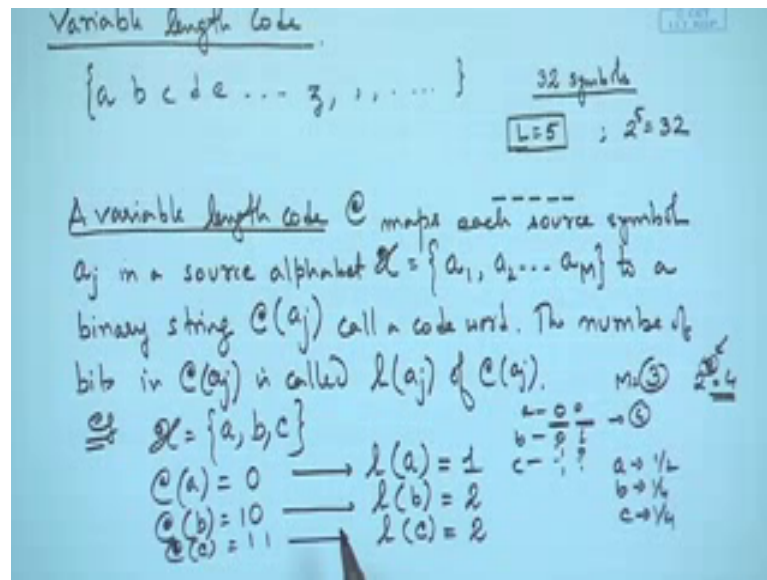 Variable length Code.
{a b c d e ... z, , , ... }
32 symbols
L=5 ; 2^5=32
A variable length code C maps each source symbol
a_j in a source alphabet X = {a_1, a_2 ... a_M} to a
binary string C(a_j) call a code word. The number of
bits in C(a_j) is called l(a_j) of C(a_j).
M=3 = 4
eg X = {a, b, c}
C(a) = 0 → l(a) = 1
C(b) = 10 → l(b) = 2
C(c) = 11 → l(c) = 2
a - 0 0
b - 0 1
c - 1
a → 1/2
b → 1/4
c → 1/4